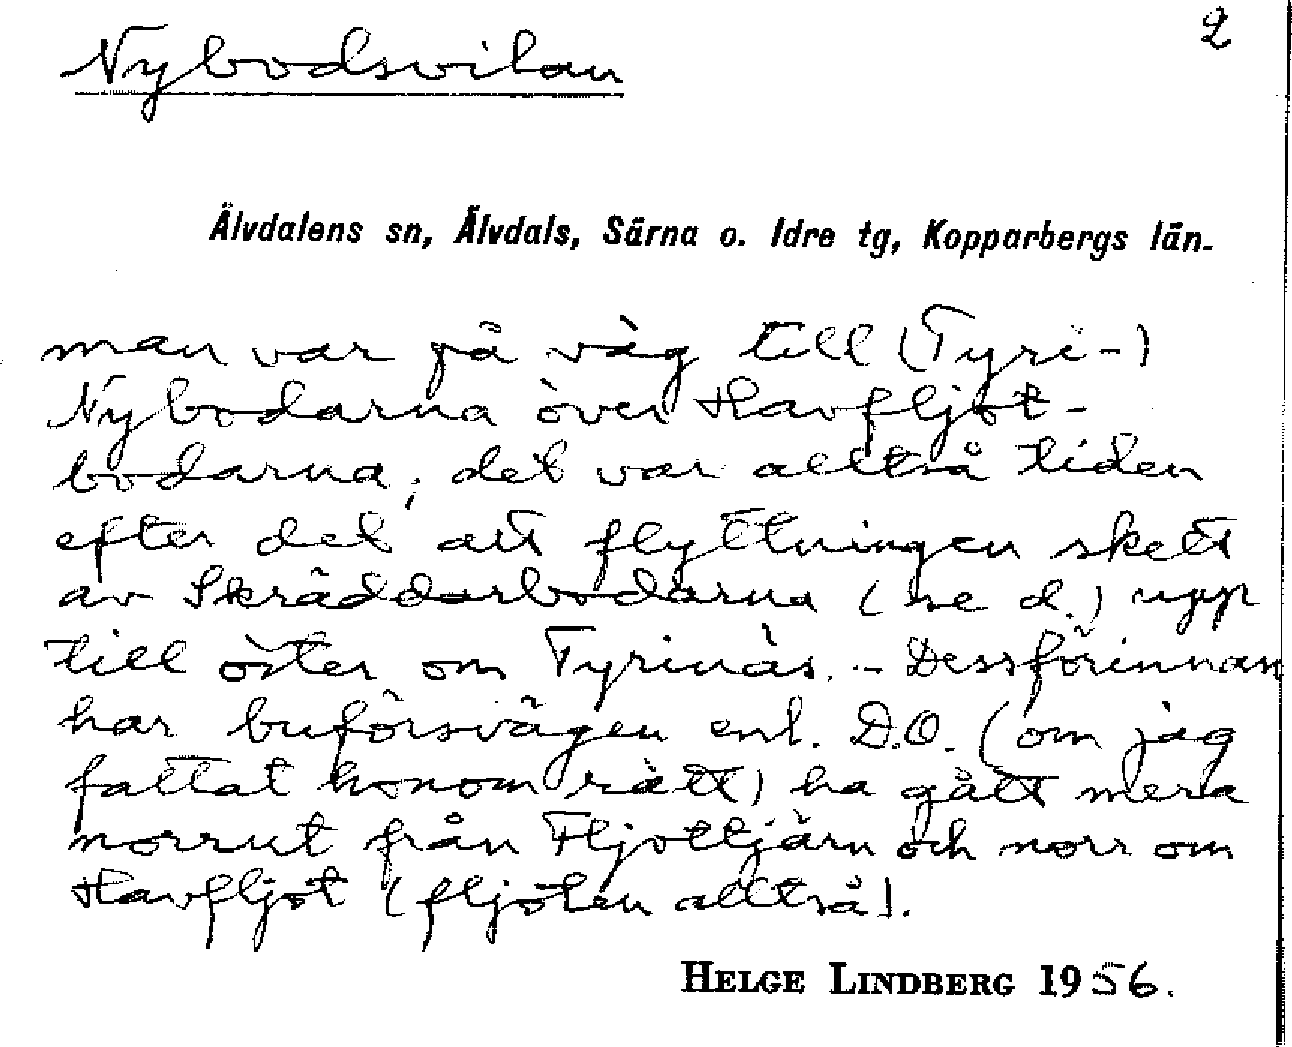 2
Nybodsvilan
Älvdalens sn, Älvdals, Särna o. Idre tg, Kopparbergs län.
man var på väg till (Tyri-)
Nybodarna över Havfljot-
bodarna; det var alltså tiden
efter det att flyttningen skett
av Skräddarbodarna (se d.) upp
till öster om Tyrinäs. - Dessförinnan
har buförsvägen enl. D.O. (om jag
fattat honom rätt) ha gått mera
norrut från Fljottjärn och norr om
Havfljot (fljoten alltså).
HELGE LINDBERG 1956.